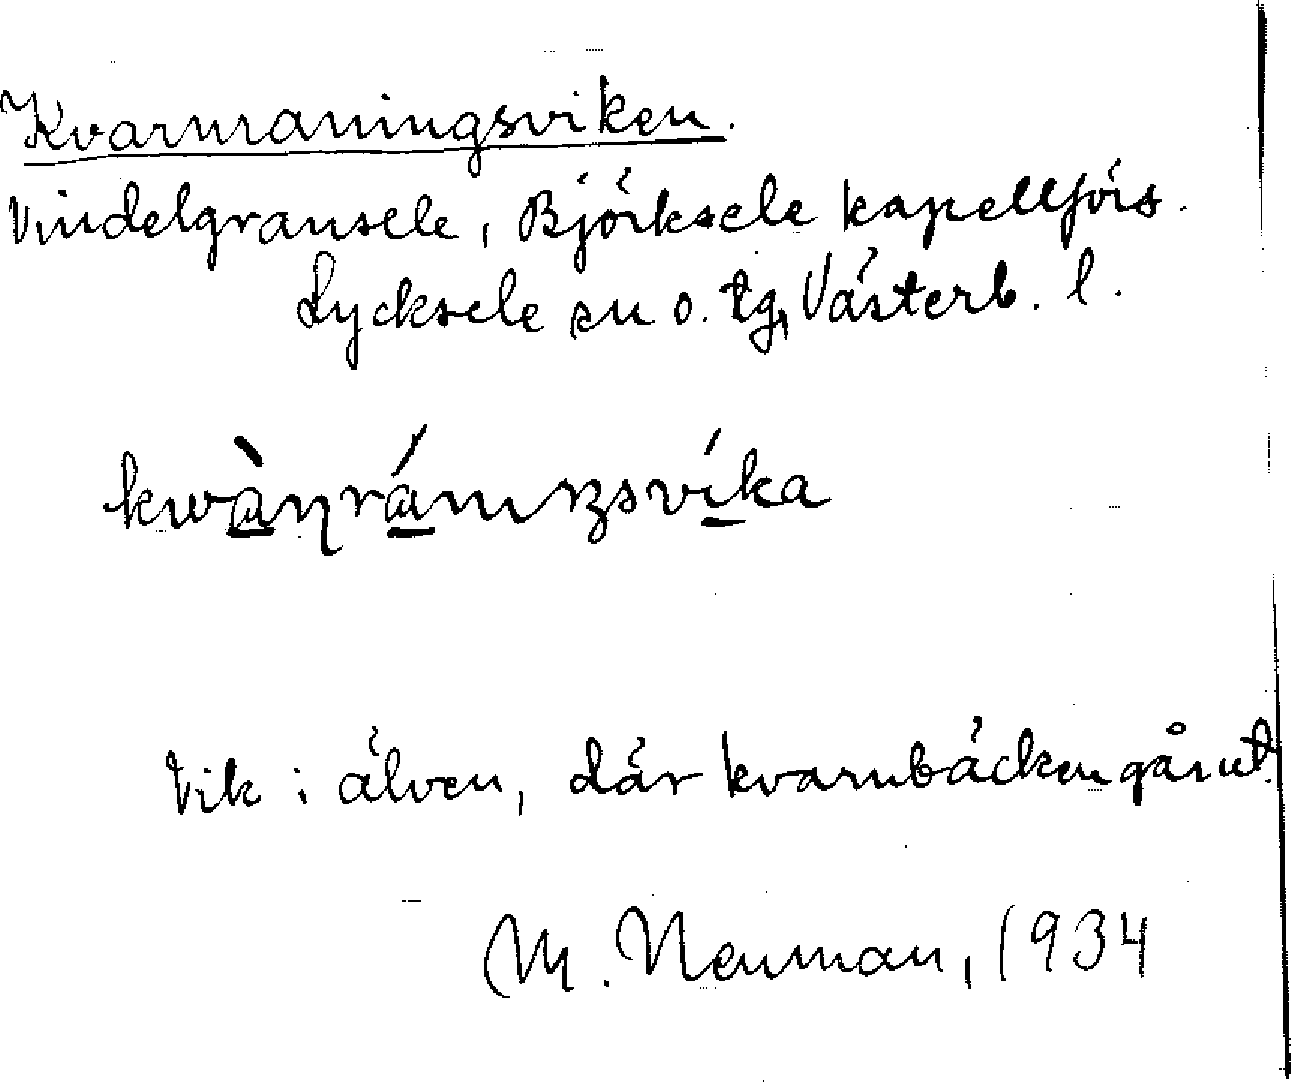 Kvarnraningsviken.
Vindelgransele, Björksele kapellförs.
Lycksele sn o. tg, Västerb. l.
kwàɳrániŋsvíka
Vik i älven, där kvarnbäcken går ut.
M. Neuman, 1934